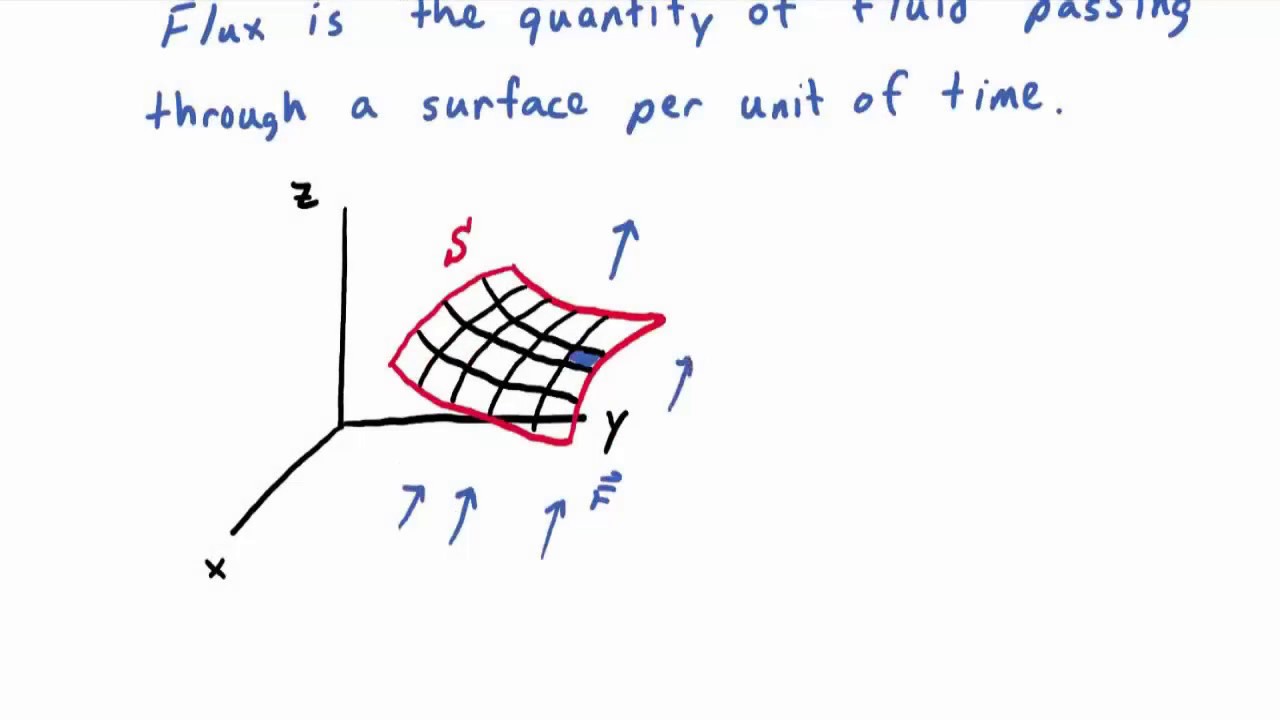 Flux is the quantity of fluid passing
through a surface per unit of time.
z
S
y
F⃗
x